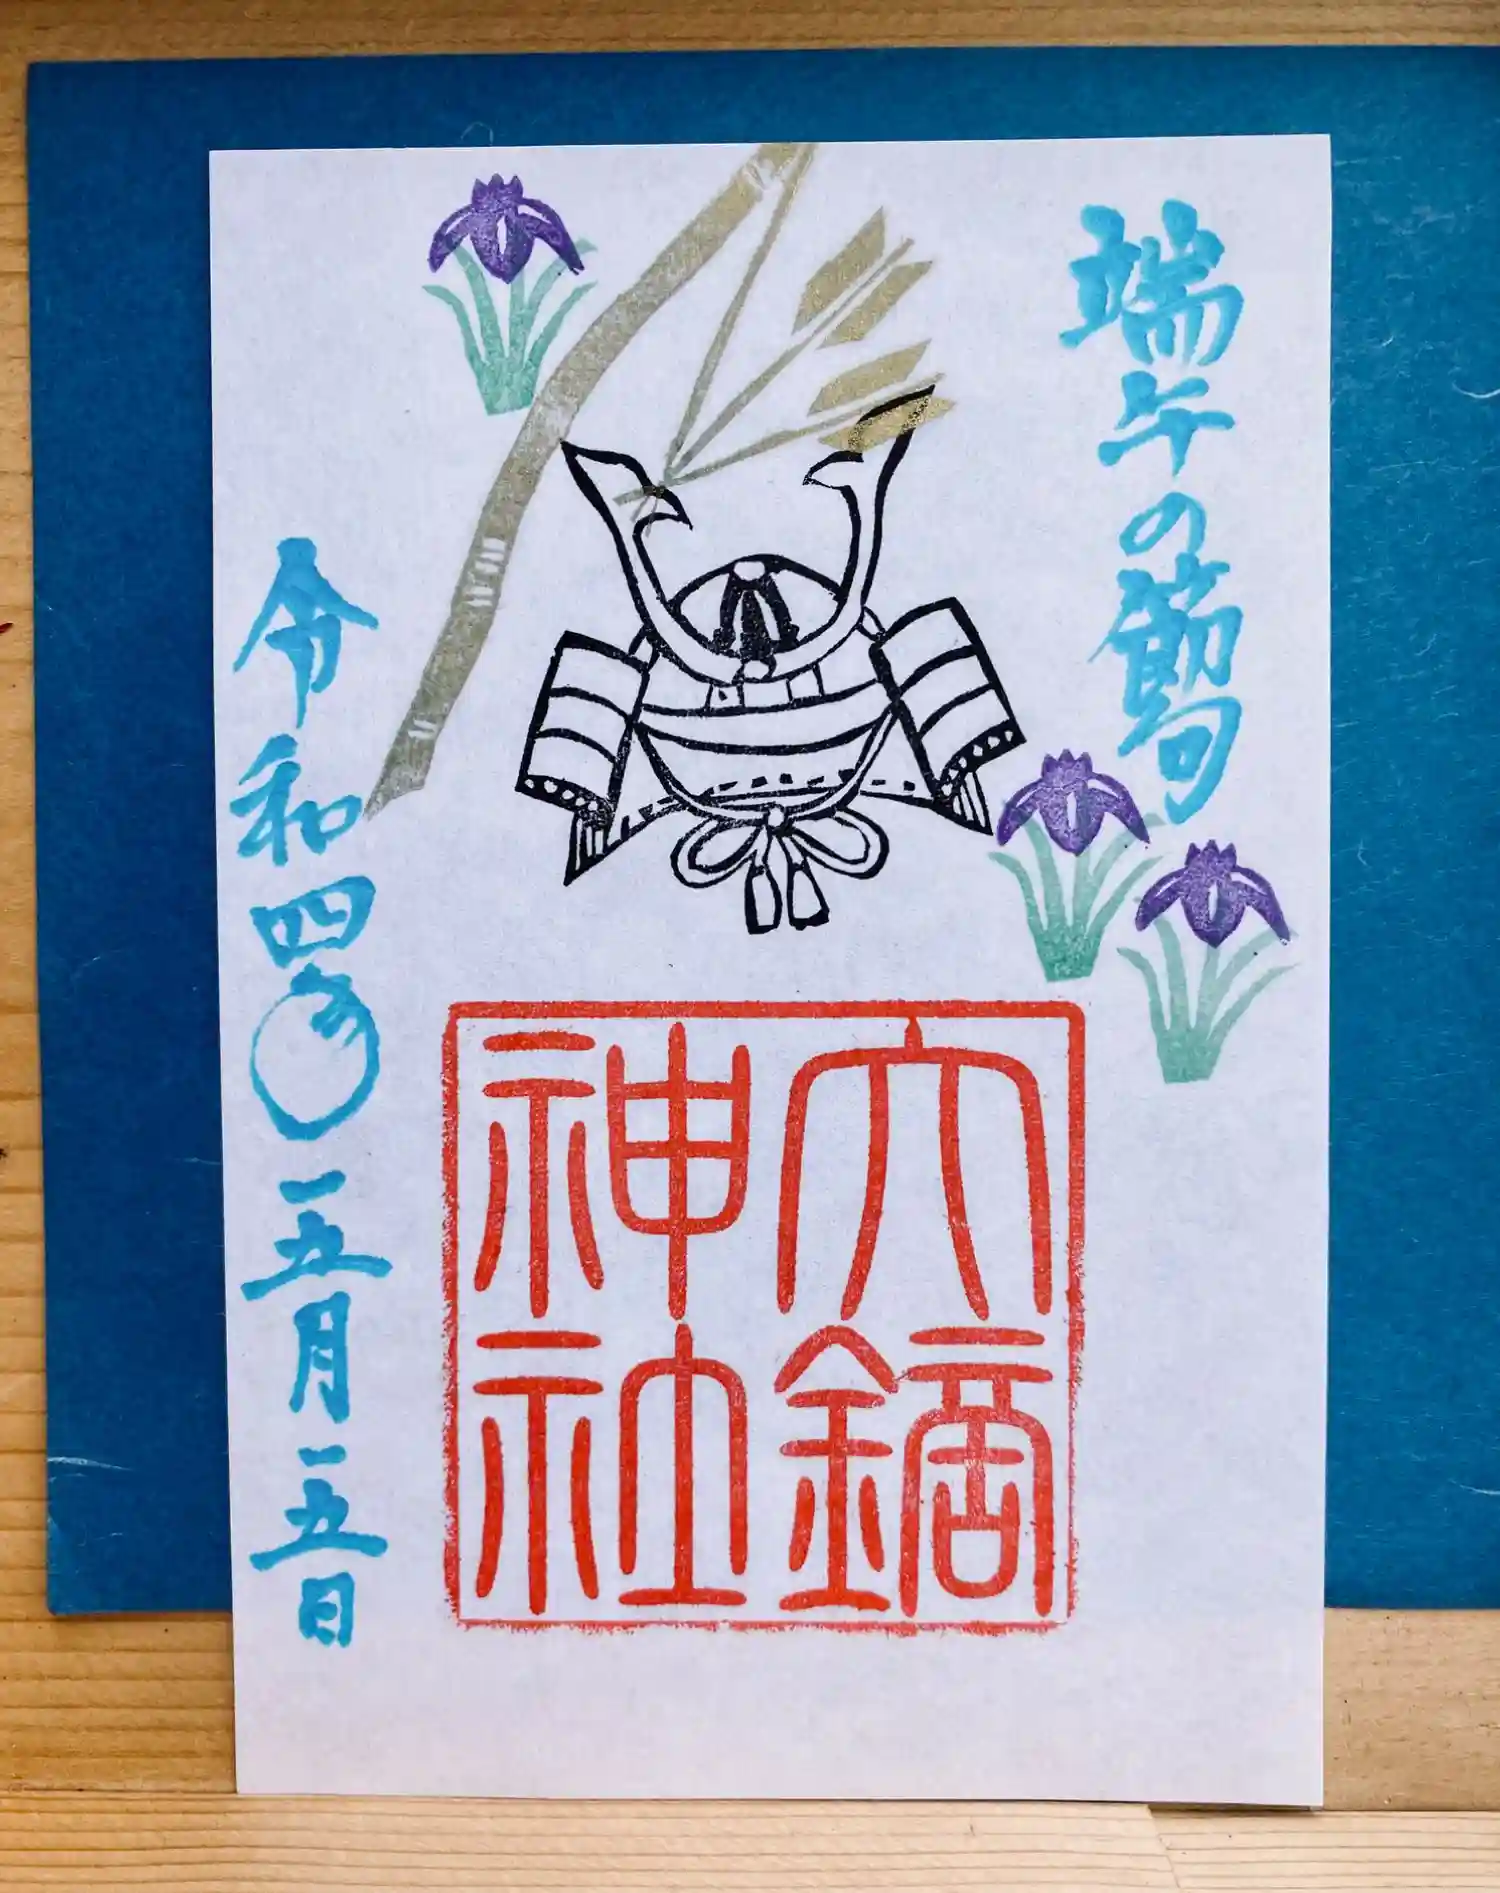 端午の節句
大鏑
神社
令和四年五月五日